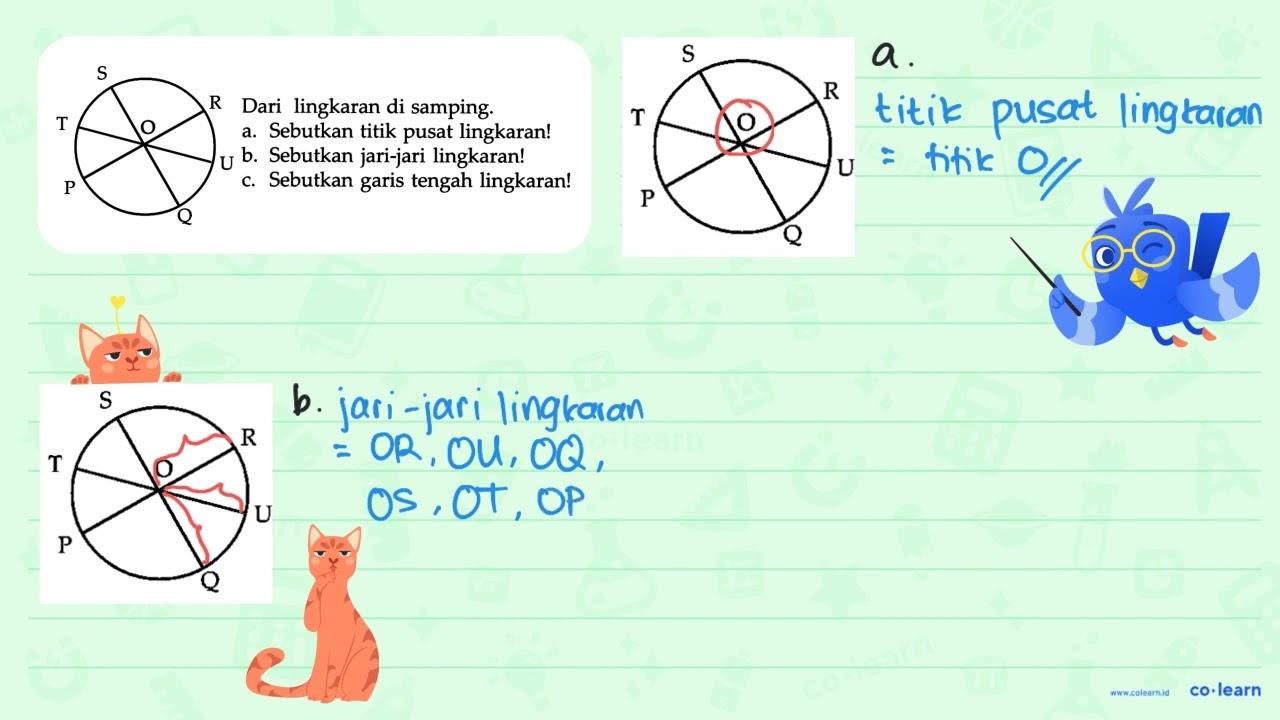 S
R
T
O
U
P
Q
Dari lingkaran di samping.
a. Sebutkan titik pusat lingkaran!
b. Sebutkan jari-jari lingkaran!
c. Sebutkan garis tengah lingkaran!
S
R
T
O
U
P
Q
a.
titik pusat lingkaran
= titik O//
S
R
T
O
U
P
Q
b. jari-jari lingkaran
= OR, OU, OQ,
OS, OT, OP
co·learn
co·learn
www.colearn.id co·learn